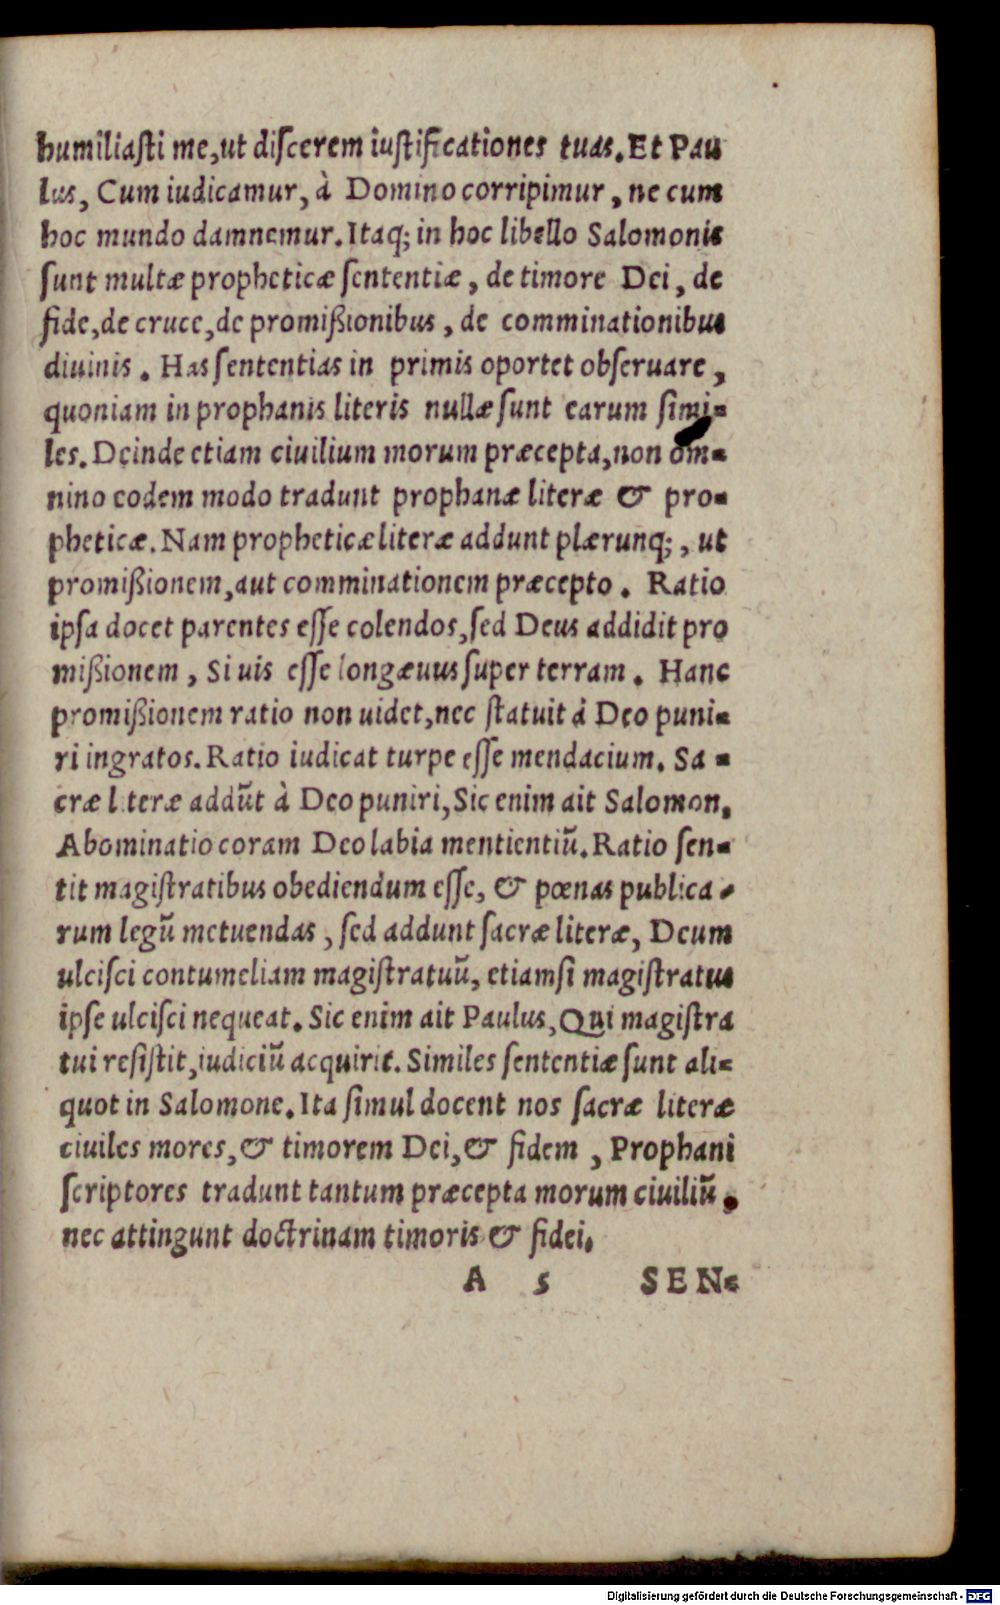 humiliaſti me,ut diſcerem iuſtificationes tuas.Et Pau
lus, Cum iudicamur, à Domino corripimur, ne cum
hoc mundo damnemur.Itaq; in hoc libello Salomonis
ſunt multæ propheticæ ſententiæ, de timore Dei, de
fide,de cruce,de promißionibus, de comminationibus
diuinis. Has ſententias in primis oportet obſeruare,
quoniam in prophanis literis nullæ ſunt earum ſimi-
les.Deinde etiam ciuilium morum præcepta,non om-
nino eodem modo tradunt prophanæ literæ & pro-
pheticæ.Nam propheticæ literæ addunt plærunq;, ut
promißionem,aut comminationem præcepto. Ratio
ipſa docet parentes eſſe colendos,ſed Deus addidit pro
mißionem, Si uis eſſe longæuus ſuper terram. Hanc
promißionem ratio non uidet,nec ſtatuit à Deo puni-
ri ingratos.Ratio iudicat turpe eſſe mendacium. Sa-
cræ literæ addũt à Deo puniri,Sic enim ait Salomon,
Abominatio coram Deo labia mentientiũ.Ratio ſen-
tit magiſtratibus obediendum eſſe, & pœnas publica-
rum legũ metuendas, ſed addunt ſacræ literæ, Deum
ulciſci contumeliam magiſtratuũ, etiamſi magiſtratus
ipſe ulciſci nequeat. Sic enim ait Paulus,Qui magiſtra
tui reſiſtit,iudiciũ acquirit. Similes ſententiæ ſunt ali-
quot in Salomone.Ita ſimul docent nos ſacræ literæ
ciuiles mores,& timorem Dei,& fidem, Prophani
ſcriptores tradunt tantum præcepta morum ciuiliũ,
nec attingunt doctrinam timoris & fidei.
A 5 SEN-
Digitalisierung gefördert durch die Deutsche Forschungsgemeinschaft - DFG